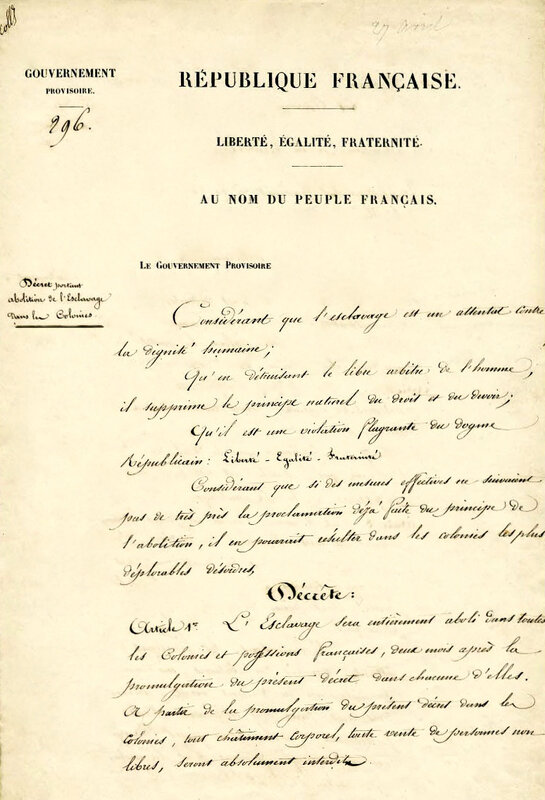 coll3
27 avril
GOUVERNEMENT
PROVISOIRE.
296.
RÉPUBLIQUE FRANÇAISE.
LIBERTÉ, ÉGALITÉ, FRATERNITÉ.
AU NOM DU PEUPLE FRANÇAIS.
LE GOUVERNEMENT PROVISOIRE
Décret portant
abolition de l'Esclavage
dans les Colonies.
Considérant que l'esclavage est un attentat contre
la dignité humaine;
Qu'en détruisant le libre arbitre de l'homme,
il supprime le principe naturel du droit et du devoir;
Qu'il est une violation flagrante du dogme
Républicain: Liberté - Egalité - Fraternité
Considérant que si des mesures effectives ne suivaient
pas de très près la proclamation déjà faite du principe de
l'abolition, il en pourrait résulter dans les colonies les plus
déplorables désordres,
Décrète:
Article 1er L'Esclavage sera entièrement aboli dans toutes
les Colonies et possessions françaises, deux mois après la
promulgation du présent décret dans chacune d'elles.
A partir de la promulgation du présent décret dans les
colonies, tout châtiment corporel, toute vente de personnes non
libres, seront absolument interdits.